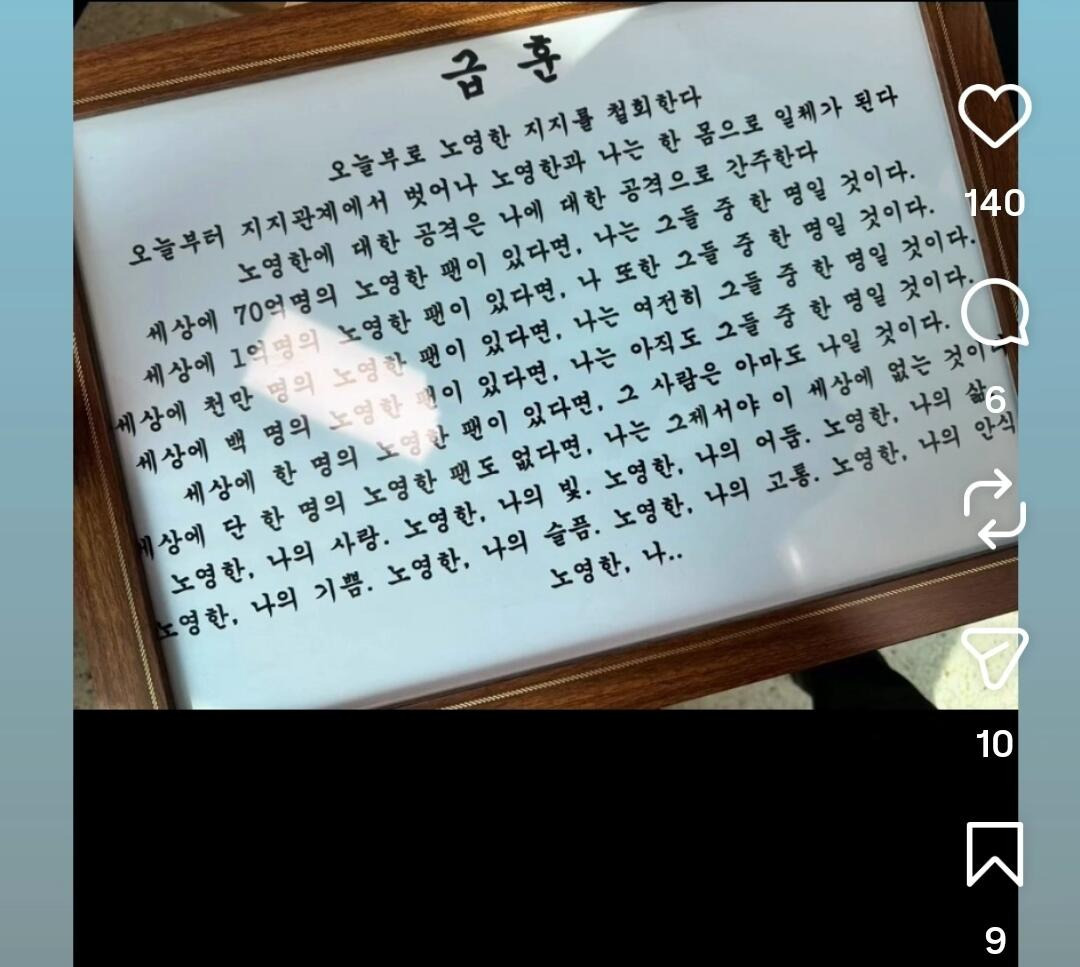 급 훈
오늘부로 노영한 지지를 철회한다
오늘부터 지지관계에서 벗어나 노영한과 나는 한 몸으로 일체가 된다
노영한에 대한 공격은 나에 대한 공격으로 간주한다
세상에 70억명의 노영한 팬이 있다면, 나는 그들 중 한 명일 것이다.
세상에 1억명의 노영한 팬이 있다면, 나 또한 그들 중 한 명일 것이다.
세상에 천만 명의 노영한 팬이 있다면, 나는 여전히 그들 중 한 명일 것이다.
세상에 백 명의 노영한 팬이 있다면, 나는 아직도 그들 중 한 명일 것이다.
세상에 한 명의 노영한 팬이 있다면, 그 사람은 아마도 나일 것이다.
세상에 단 한 명의 노영한 팬도 없다면, 나는 그제서야 이 세상에 없는 것이다
노영한, 나의 사랑. 노영한, 나의 빛. 노영한, 나의 어둠. 노영한, 나의 삶
노영한, 나의 기쁨. 노영한, 나의 슬픔. 노영한, 나의 고통. 노영한, 나의 안식
노영한, 나..
140
6
10
9